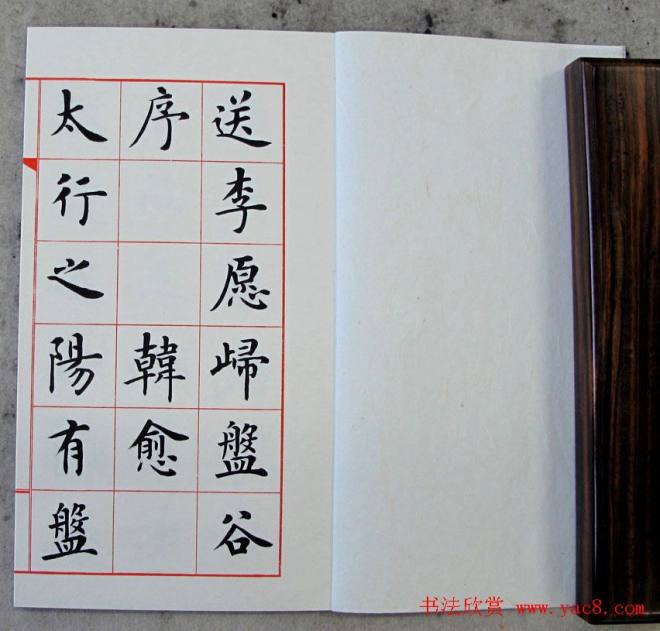 送李愿歸盤谷
序 韓愈
太行之陽有盤
书法欣赏 www.yac8.com